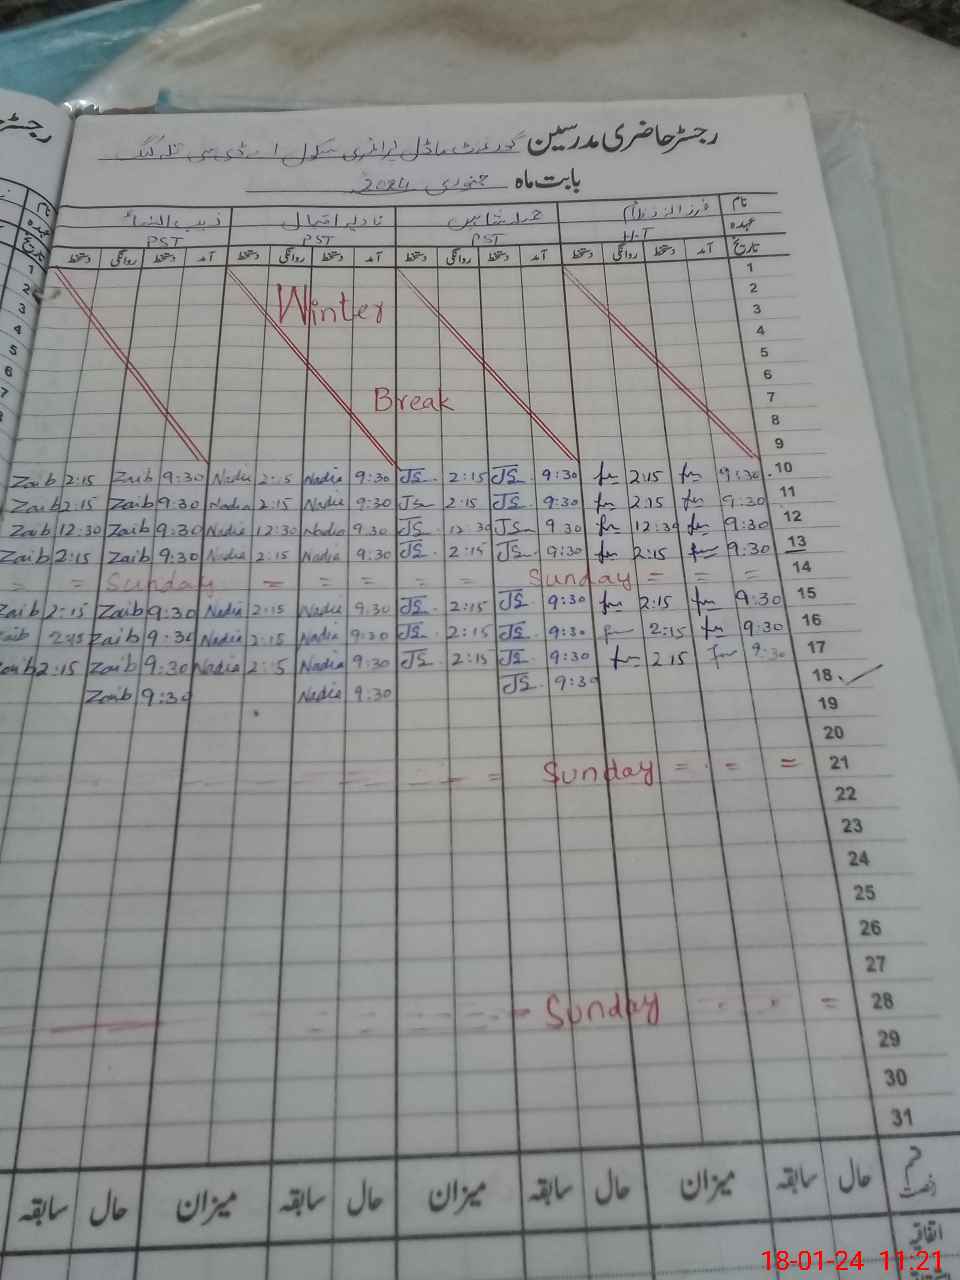 رجسٹر حاضری مدرسین گورنمنٹ ماڈل پرائمری سکول
بابت ماہ جنوری 2024
نام فرزانہ شاہین نادیہ اقبال زیب النساء
عہدہ H.T PST PST PST
تاریخ آمد دستخط روانگی دستخط آمد دستخط روانگی دستخط آمد دستخط روانگی دستخط آمد دستخط روانگی دستخط
1
2
Winter
3
4
5
6
Break
7
8
9
Zaib 2:15 Zaib 9:30 Nadia 2:15 Nadia 9:30 JS 2:15 JS 9:30 fr 2:15 fr 9:30 10
Zaib 2:15 Zaib 9:30 Nadia 2:15 Nadia 9:30 JS 2:15 JS 9:30 fr 2:15 fr 9:30 11
Zaib 12:30 Zaib 9:30 Nadia 12:30 Nadia 9:30 JS 12:30 JS 9:30 fr 12:30 fr 9:30 12
Zaib 2:15 Zaib 9:30 Nadia 2:15 Nadia 9:30 JS 2:15 JS 9:30 fr 2:15 fr 9:30 13
= = Sunday = = = = = Sunday = = = 14
Zaib 2:15 Zaib 9:30 Nadia 2:15 Nadia 9:30 JS 2:15 JS 9:30 fr 2:15 fr 9:30 15
Zaib 2:15 Zaib 9:30 Nadia 2:15 Nadia 9:30 JS 2:15 JS 9:30 fr 2:15 fr 9:30 16
Zaib 2:15 Zaib 9:30 Nadia 2:15 Nadia 9:30 JS 2:15 JS 9:30 fr 2:15 fr 9:30 17
Zaib 9:30 Nadia 9:30 JS 9:30 18
19
20
Sunday = = = 21
22
23
24
25
26
27
Sunday = 28
29
30
31
حال سابقہ میزان حال سابقہ میزان حال سابقہ میزان حال سابقہ
اتفاقیہ
18-01-24 11:21